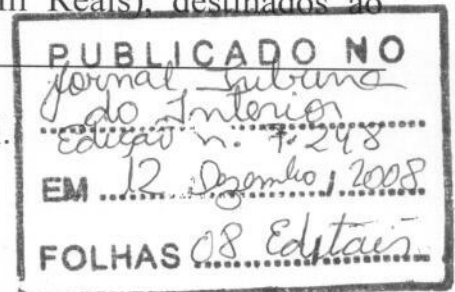 Reais), destinados ao
PUBLICADO NO
Jornal Tribuna
do Interior
Edição n. 7.248
EM 12 Dezembro / 2008
FOLHAS 08 Editais